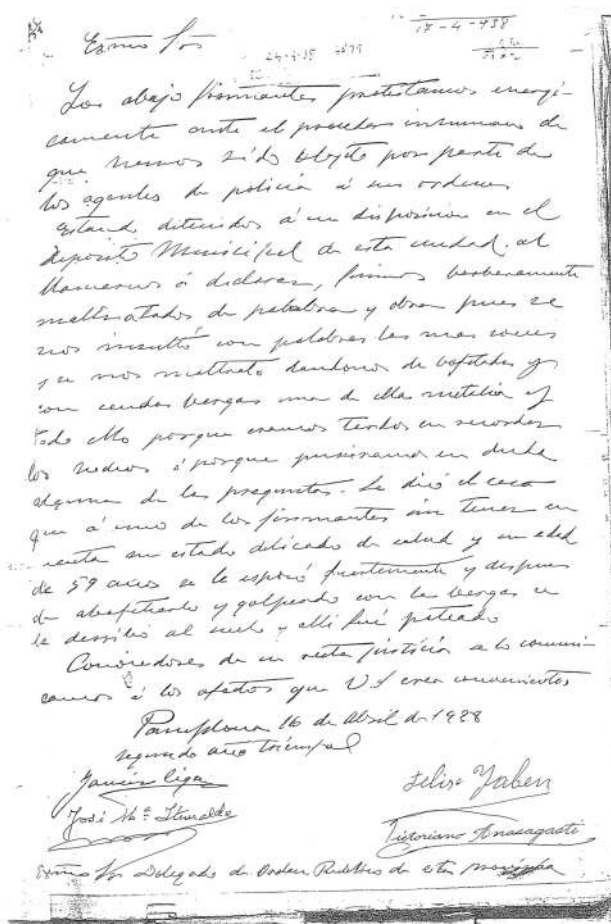 17-4-938
Exmo Sor
Los abajo firmantes protestamos enérgi-
camente ante el proceder inhumano de
que hemos sido objeto por parte de
los agentes de policia á sus ordenes
Estando detenidos á su disposicion en el
Deposito Municipal de esta ciudad, al
llamarnos á declarar, fuimos barbaramente
maltratados de palabra y obra pues se
nos insultó con palabras las mas soeces
y se nos maltrato dandonos de bofetadas y
con sendas bergas una de ellas metalica y
todo ello porque eramos tardos en recordar
los hechos ó porque pusieramos en duda
alguna de las preguntas. Se dió el caso
que á uno de los firmantes sin tener en
cuenta su estado delicado de salud y su edad
de 59 años se le esposó fuertemente y despues
de abofetearlo y golpearlo con la berga se
le derribó al suelo y alli fué pateado
Conocedores de su recta justicia se lo comuni-
camos á los efectos que V.S crea convenientes
Pamplona 16 de Abril de 1938
segundo año triunfal
José Mª Iturralde
Felix Yaben
Victoriano Anasagasti
Exmo Sr Delegado de Orden Publico de esta provincia